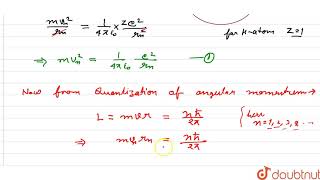 mvn²/rn = 1/4πε0 × Ze²/rn² for H-atom Z=1
⇒ mvn² = 1/4πε0 e²/rn — ①
Now from Quantization of angular momentum →
L = mvr = nℏ/2π { here n=1, 2, 3, 4 ...
⇒ mvn rn = nℏ/2π
doubtnut